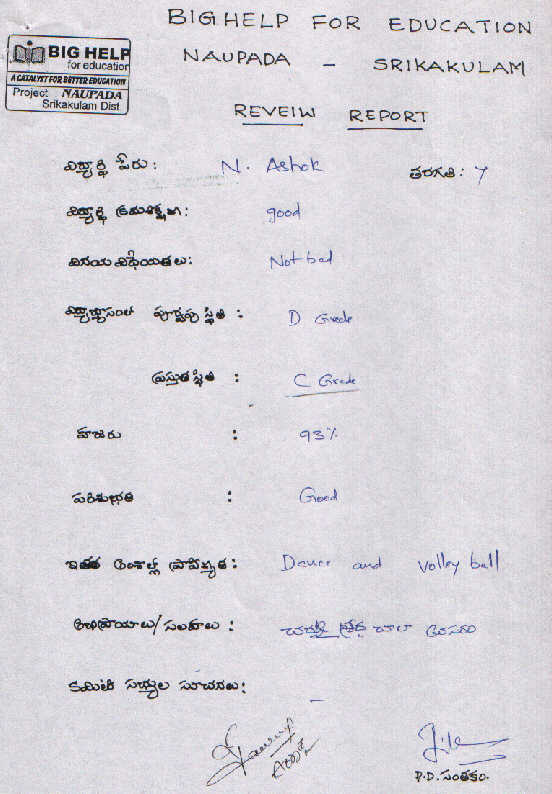 BIG HELP FOR EDUCATION
NAUPADA - SRIKAKULAM
BIG HELP
for education
A CATALYST FOR BETTER EDUCATION
Project NAUPADA
Srikakulam Dist.
REVEIW REPORT
విద్యార్థి పేరు: N. Ashok తరగతి: 7
విద్యార్థి క్రమశిక్షణ: good
వినయ విధేయతలు: Not bad
విద్యాభ్యాసంలో పూర్వపు స్థితి : D Grade
ప్రస్తుత స్థితి : C Grade
హాజరు : 93%
పరిశుభ్రత : Good
ఇతర అంశాల్లో ప్రావీణ్యత : Dance and Volley ball
అభిప్రాయాలు/సలహాలు : శ్రద్ధ చాలా అవసరం
కమిటీ సభ్యుల సూచనలు: -
P.D. సంతకం